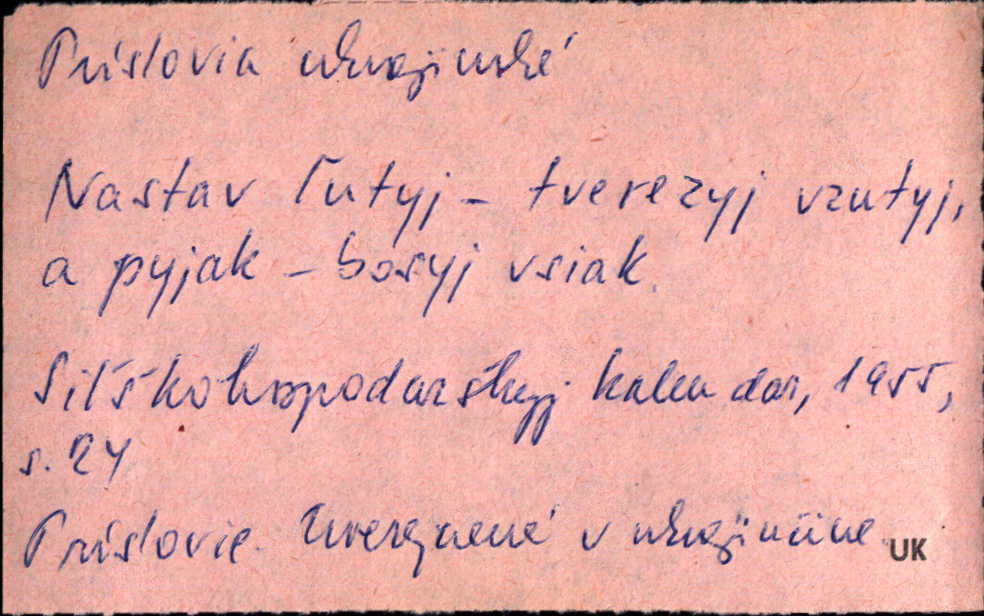 Príslovia ukrajinské
Nastav ľutyj – tverezyj vzutyj,
a pyjak – bosyj vsiak.
Siľśkohospodarśkyj kalendar, 1955,
s. 24
Príslovie. Uverejnené v ukrajinčine
UK